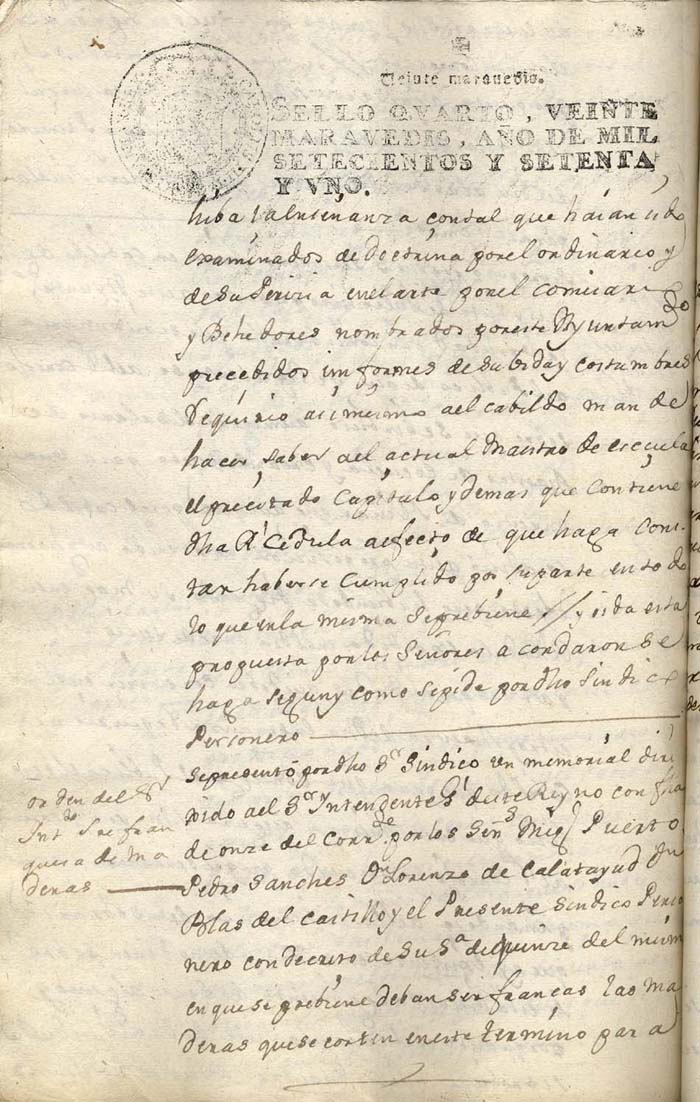 Veinte maravedis.
SELLO QVARTO, VEINTE
MARAVEDIS, AÑO DE MIL
SETECIENTOS Y SETENTA
Y VNO.
hiba la enseñanza contal que haian sido
examinados de Doctrina porel ordinario y
desu Pericia enelarte porel comisario
y Behedores nombrados poreste Ayuntamto
precedidos informes desubida y costumbres
Requirio asimesmo ael cabildo mande
hacer saber ael actual Maestro de escuela
elprecitado Capitulo y demas que contiene
dha Rl Cedula aefecto de que haga cons-
tar haberse Cumplido por suparte entodo
lo que enla misma seprebiene // y oida esta
propuesta porlos Señores acordaron se
haga segun y como sepide pordho Sindico
Personero
sepresentó pordho Sr Sindico un memorial diri
xido ael Sr Yntendente deste Reyno con fha
de onze del Corrte por los Señs Migl Puerto
Pedro Sanches Dn Lorenzo de Calatayud Dn
Blas del Castillo y el Presente Sindico Perso
nero condecreto de Su Sa. de quinze del mism
en quese prebiene deban ser francas las ma
deras quese corten eneste termino para
orden del Sr
Intte Sre fran
queza de ma
deras